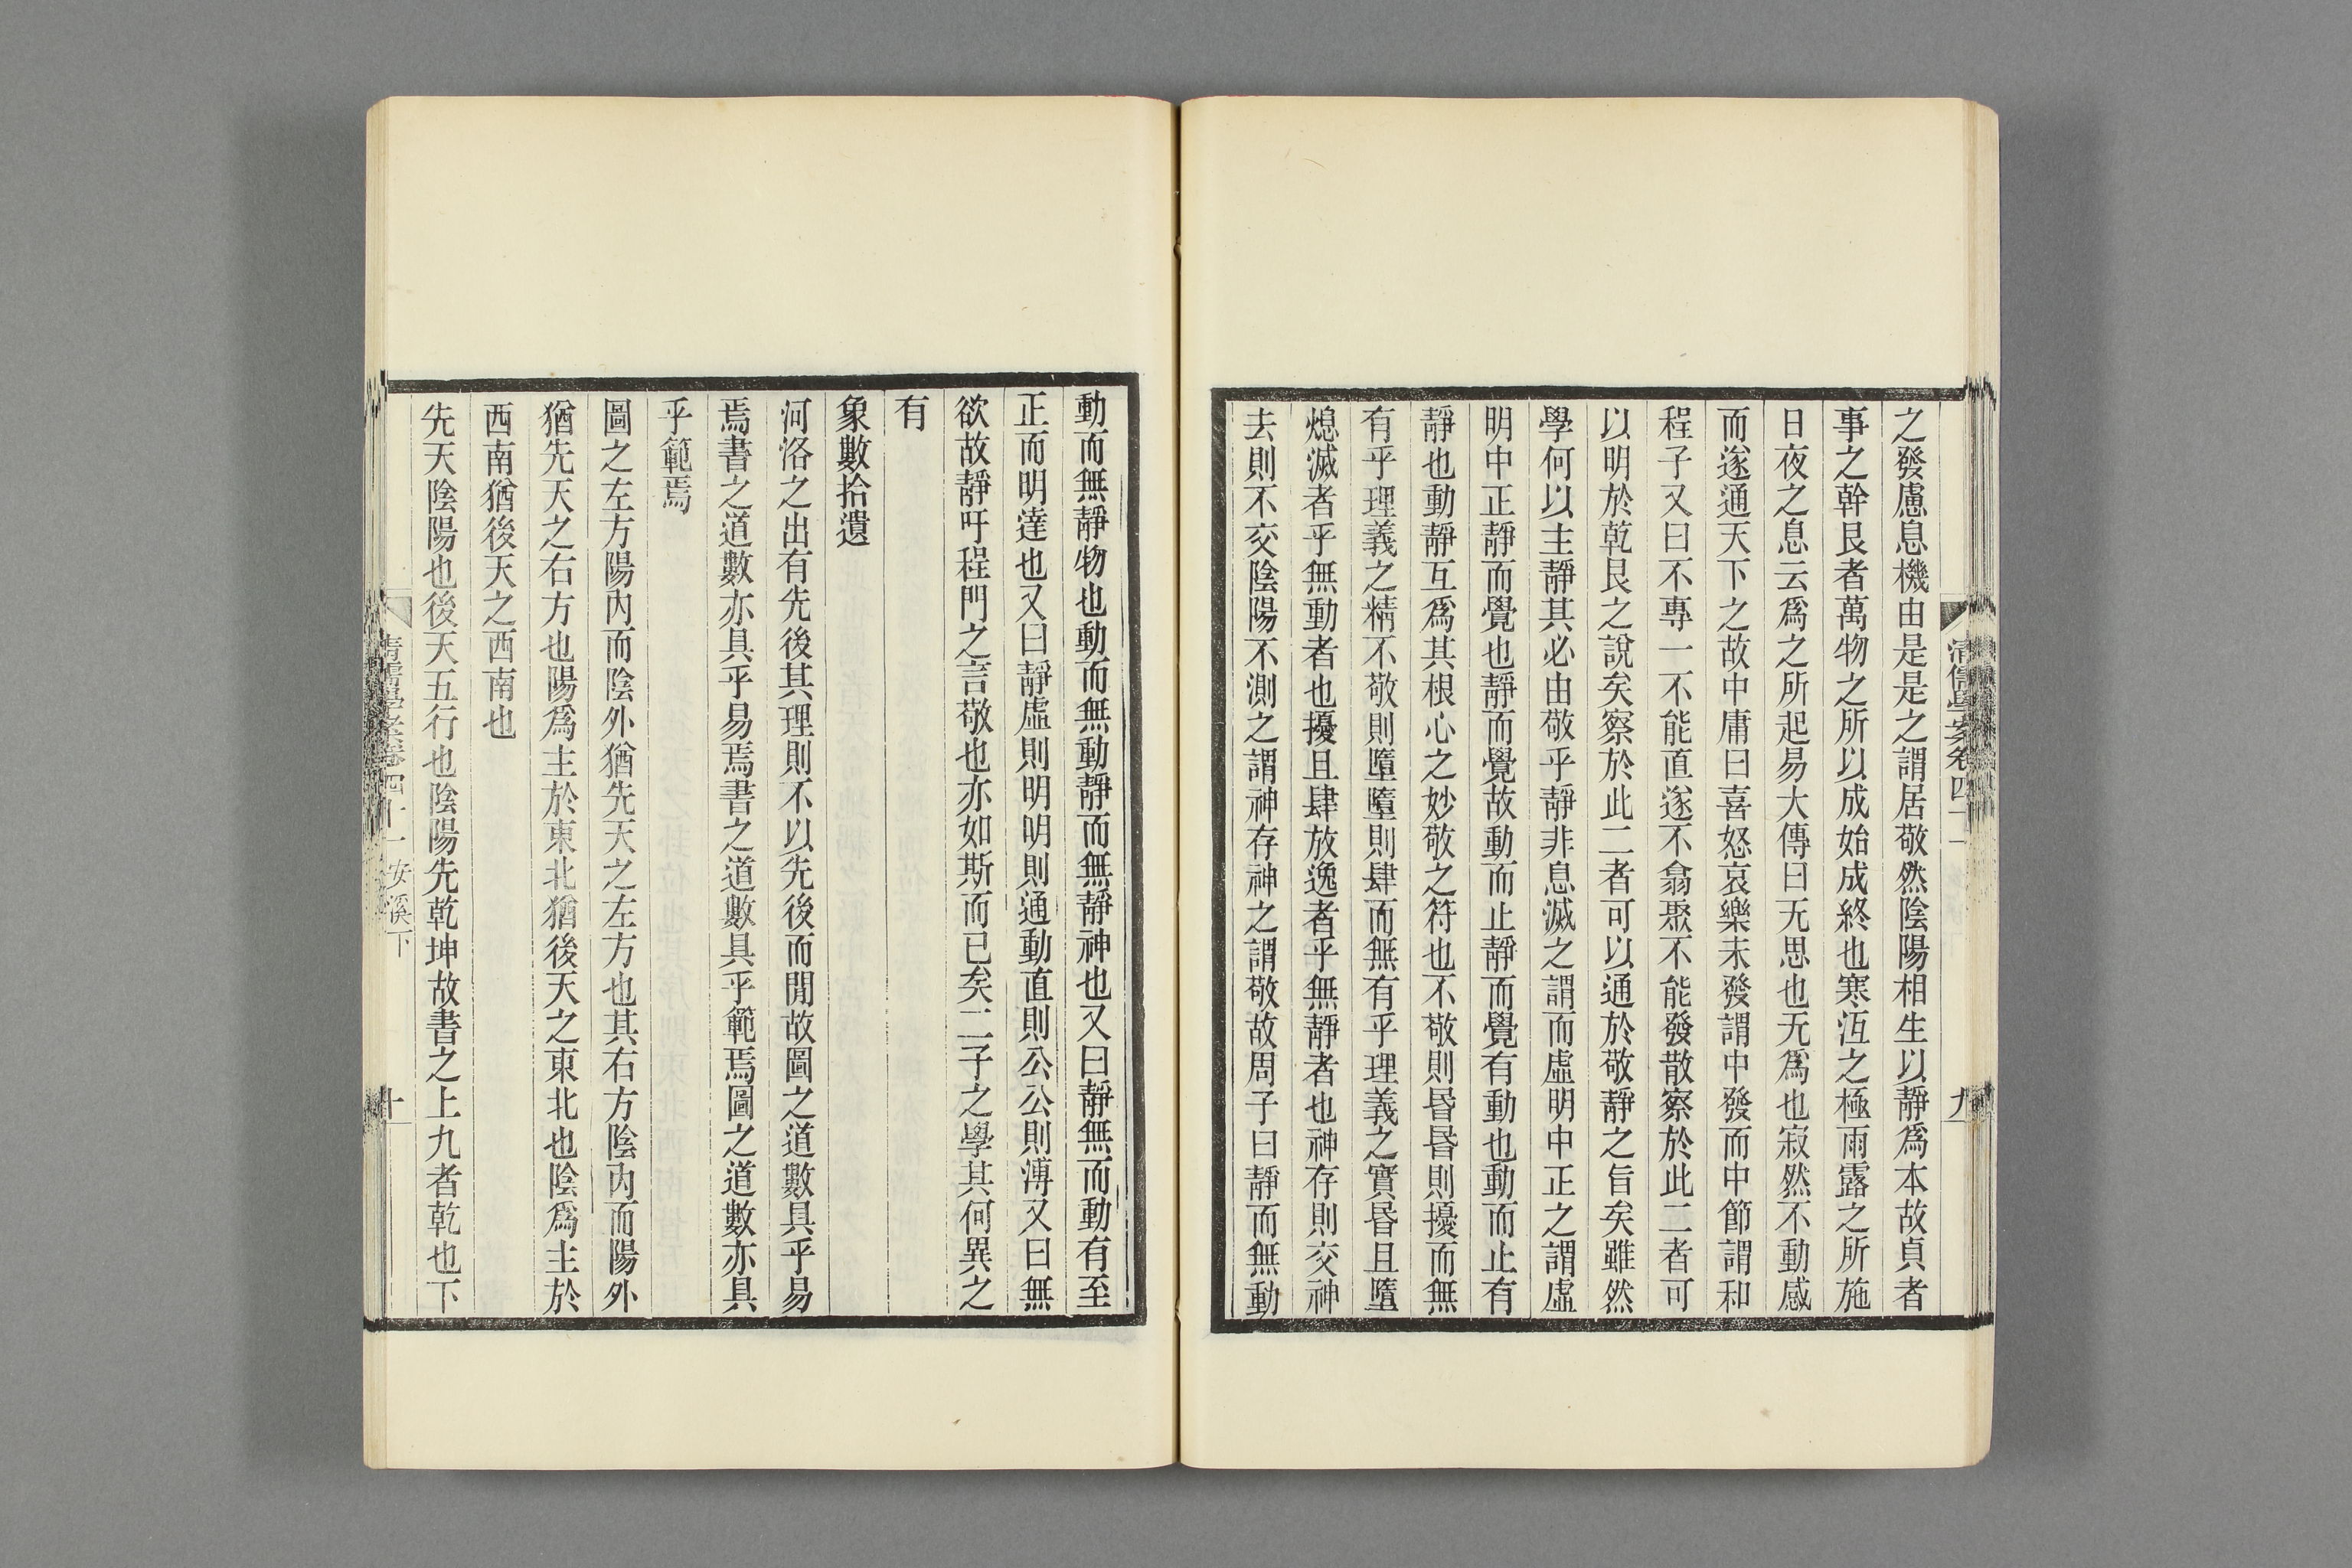 之發慮息機由是是之謂居敬然陰陽相生以靜爲本故貞者
事之幹艮者萬物之所以成始成終也寒沍之極雨露之所施
日夜之息云爲之所起易大傳曰无思也无爲也寂然不動感
而遂通天下之故中庸曰喜怒哀樂未發謂中發而中節謂和
程子又曰不專一不能直遂不翕聚不能發散察於此二者可
以明於乾艮之說矣察於此二者可以通於敬靜之旨矣雖然
學何以主靜其必由敬乎靜非息滅之謂而虛明中正之謂虛
明中正靜而覺也靜而覺故動而止靜而覺有動也動而止有
靜也動靜互爲其根心之妙敬之符也不敬則昬昬則擾而無
有乎理義之精不敬則墮墮則肆而無有乎理義之實昬且墮
熄滅者乎無動者也擾且肆放逸者乎無靜者也神存則交神
去則不交陰陽不測之謂神存神之謂敬故周子曰靜而無動
清儒學案卷四十一
九
動而無靜物也動而無動靜而無靜神也又曰靜無而動有至
正而明達也又曰靜虛則明明則通動直則公公則溥又曰無
欲故靜吁程門之言敬也亦如斯而已矣二子之學其何異之
有
象數拾遺
河洛之出有先後其理則不以先後而閒故圖之道數具乎易
焉書之道數亦具乎易焉書之道數具乎範焉圖之道數亦具
乎範焉
圖之左方陽內而陰外猶先天之左方也其右方陰內而陽外
猶先天之右方也陽爲主於東北猶後天之東北也陰爲主於
西南猶後天之西南也
先天陰陽也後天五行也陰陽先乾坤故書之上九者乾也下
清儒學案卷四十一 安溪下
十